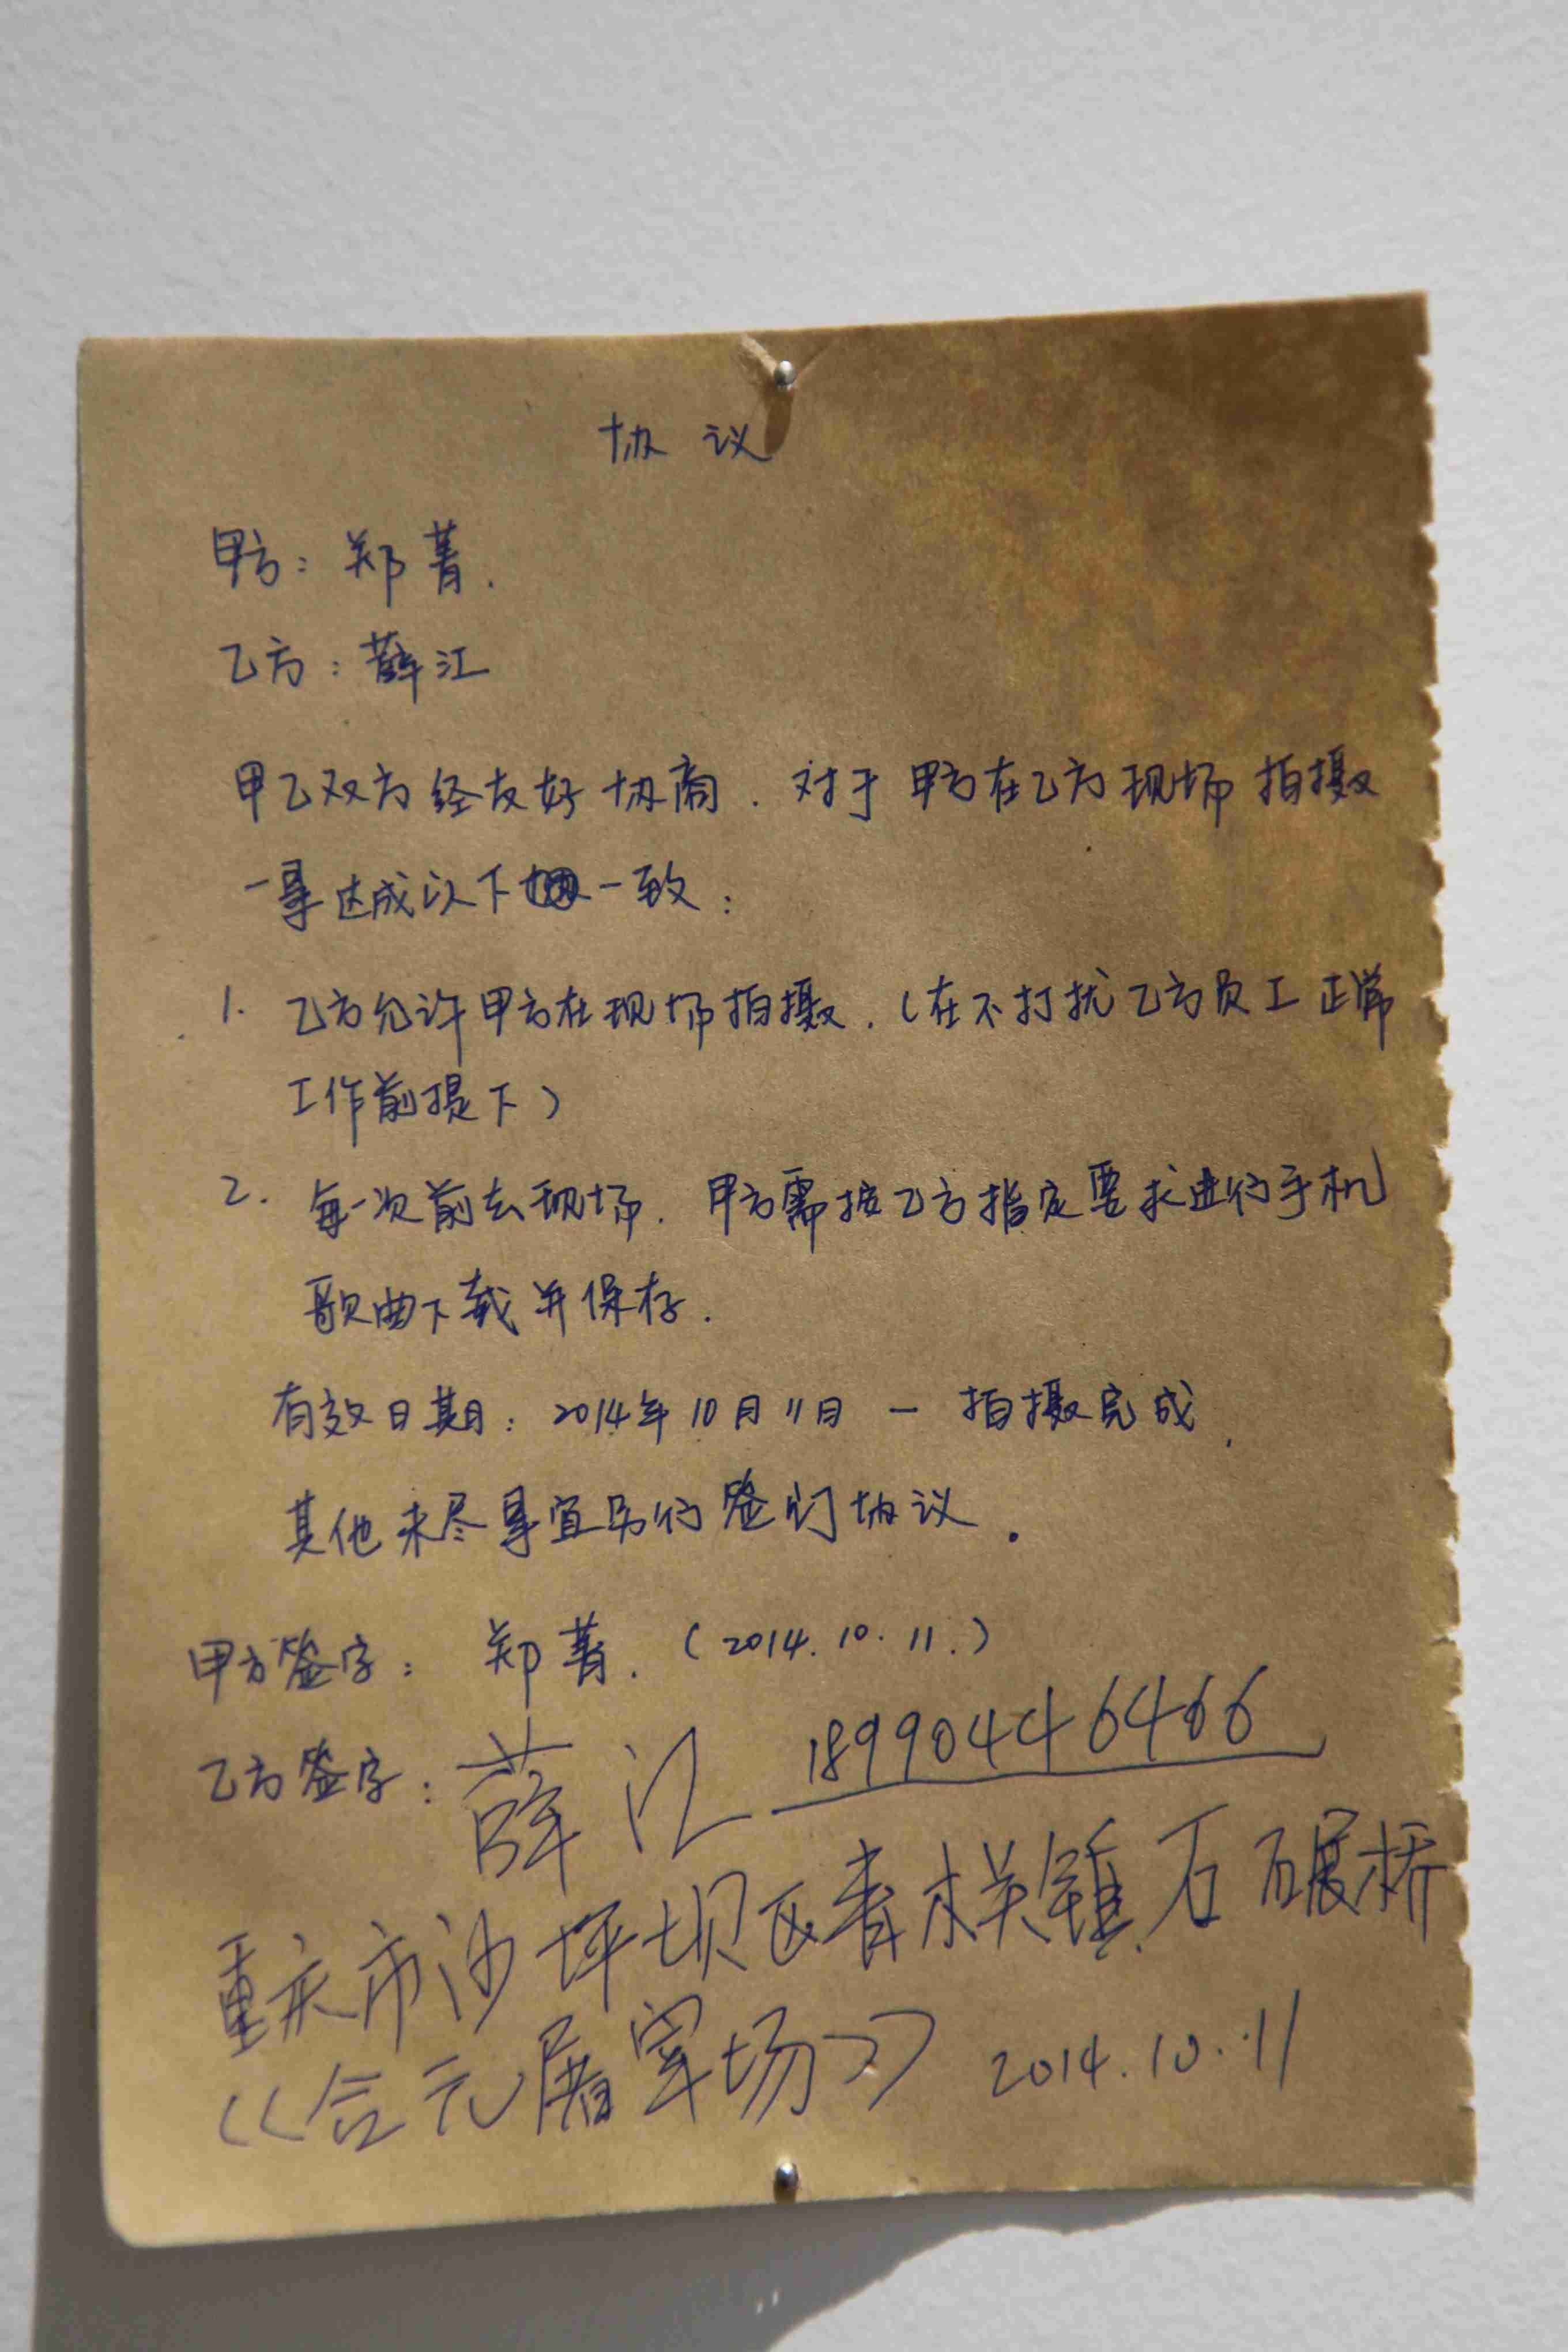 协议
甲方：郑菁.
乙方：薛江
甲乙双方经友好协商. 对于甲方在乙方现场拍摄
一事达成以下一致：
1. 乙方允许甲方在现场拍摄.（在不打扰乙方员工正常
工作前提下）
2. 每一次前去现场. 甲方需按乙方指定要求进行手机
歌曲下载并保存.
有效日期：2014年10月11日 — 拍摄完成.
其他未尽事宜另行签订协议.
甲方签字：郑菁.（2014.10.11.）
乙方签字：薛江 18990446466
重庆市沙坪坝区青木关镇石碾桥
《合元屠宰场》 2014.10.11